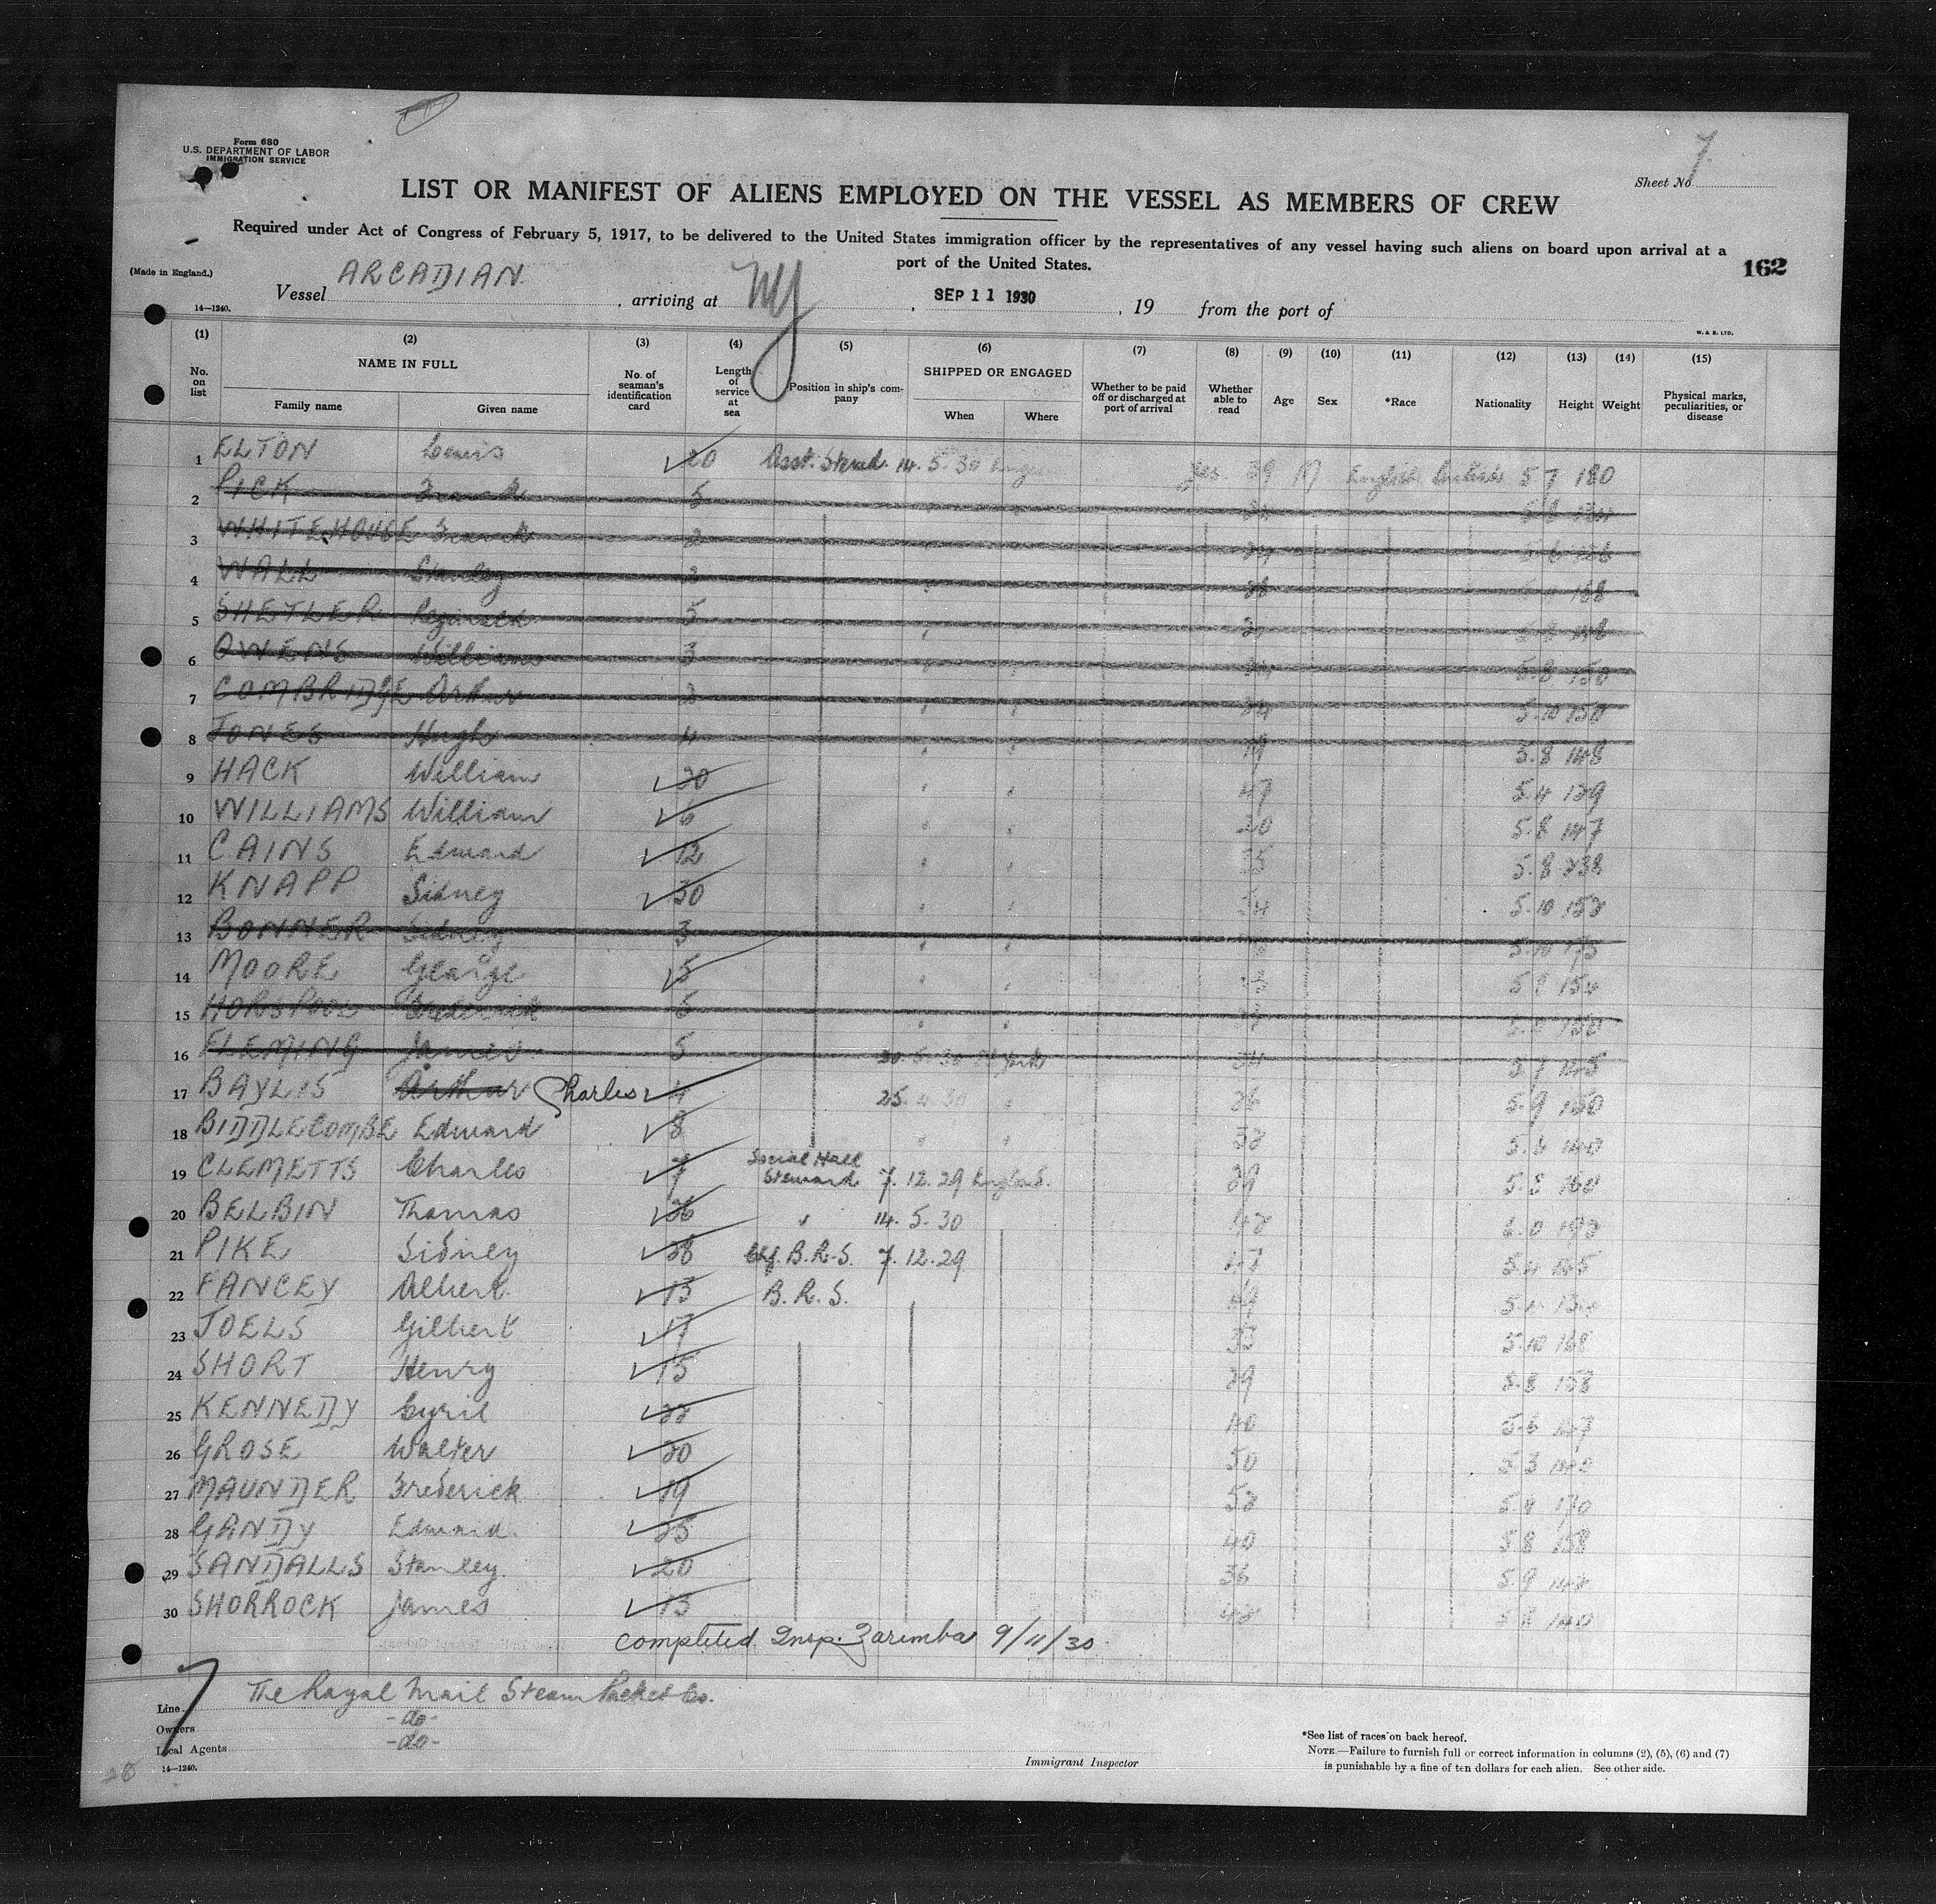 Form 680
U.S. DEPARTMENT OF LABOR
IMMIGRATION SERVICE
7
Sheet No.
LIST OR MANIFEST OF ALIENS EMPLOYED ON THE VESSEL AS MEMBERS OF CREW
Required under Act of Congress of February 5, 1917, to be delivered to the United States immigration officer by the representatives of any vessel having such aliens on board upon arrival at a
port of the United States.
162
(Made in England.)
Vessel ARCADIAN, arriving at NY, SEP 11 1930, 19 from the port of
14—1240.
W. & S. LTD.
(1) (2) (3) (4) (5) (6) (7) (8) (9) (10) (11) (12) (13) (14) (15)
No. on list
NAME IN FULL
Family name Given name
No. of seaman's identification card
Length of service at sea
Position in ship's company
SHIPPED OR ENGAGED
When Where
Whether to be paid off or discharged at port of arrival
Whether able to read
Age Sex *Race Nationality Height Weight
Physical marks, peculiarities, or disease
1 ELTON Lewis 20 Asst. Steward 14. 5. 30 yes 39 M English British 5 7 180
2 PICK Frank 5
3 WHITEHOUSE Frank 2 5.6 126
4 WALL Stanley 2 168
5 SHETLER Reginald 5
6 OWENS William 3 5.8 150
7 COMBRIDGE Arthur 2 24 5.10 150
8 JONES Hugh 4 19 5.8 148
9 HACK William 30 47 5.4 129
10 WILLIAMS William 6 20 5.8 147
11 CAINS Edward 12 35 5.8 238
12 KNAPP Sidney 30 54 5.10 152
13 BONNER Sidney 3 5.10 175
14 MOORE George 5 154
15 HORSPOOL Frederick 5 150
16 FLEMING James 5 30. 5. 30 N. York 34 5.7 145
17 BAYLIS Arthur Charles 4 25. 4. 30 26 5.9 150
18 BIDDLECOMBE Edward 8 32 140
19 CLEMETTS Charles 7 Social Hall Steward 7. 12. 29 England. 29 5.8 160
20 BELBIN Thomas 26 " 14. 5. 30 42 6.0 192
21 PIKE Sidney 28 Chf. B.R.S. 7. 12. 29 47 5.4 145
22 FANCEY Albert 13 B.R.S.
23 JOELS Gilbert 17 33 5.10 168
24 SHORT Henry 15 29 5.8 158
25 KENNEDY Cyril 22 40 5.6 147
26 GROSE Walter 20 50 5.3
27 MAUNDER Frederick 19 52 170
28 GANDY Edward 25 40 5.8 158
29 SANDALLS Stanley 20 36 5.9 142
30 SHORROCK James 13 42 5.8 140
completed. Insp. Zaremba 9/11/30
7
Line The Royal Mail Steam Packet Co.
Owners -do-
Local Agents -do-
14—1240.
Immigrant Inspector
*See list of races on back hereof.
NOTE.—Failure to furnish full or correct information in columns (2), (5), (6) and (7)
is punishable by a fine of ten dollars for each alien. See other side.